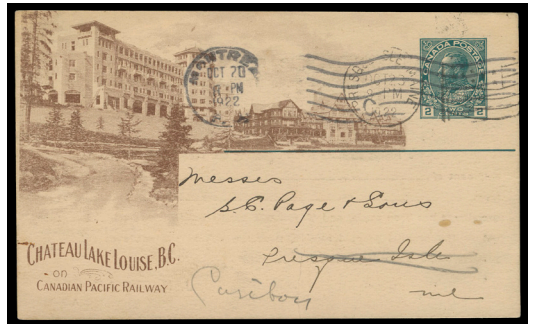 MONTREAL
OCT 20
PM
1922
CANADA POSTAGE
2 2
Messrs
S. C. Page & Sons
Presque Isle
Caribou
me
CHATEAU LAKE LOUISE, B.C.
on
CANADIAN PACIFIC RAILWAY